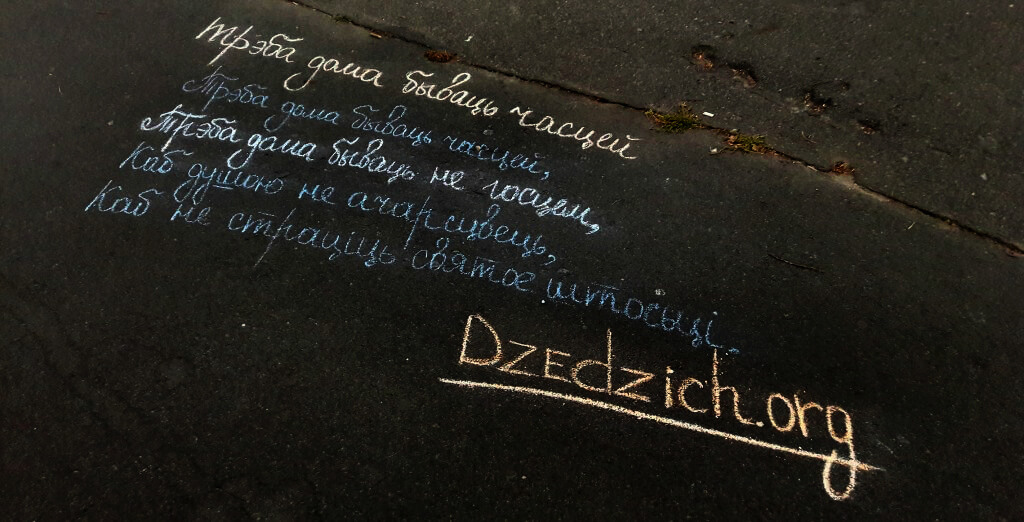 Трэба дома бываць часцей
Трэба дома бываць часцей,
Трэба дома бываць не госцем,
Каб душою не ачарсцвець,
Каб не страціць святое штосьці.
Dzedzich.org